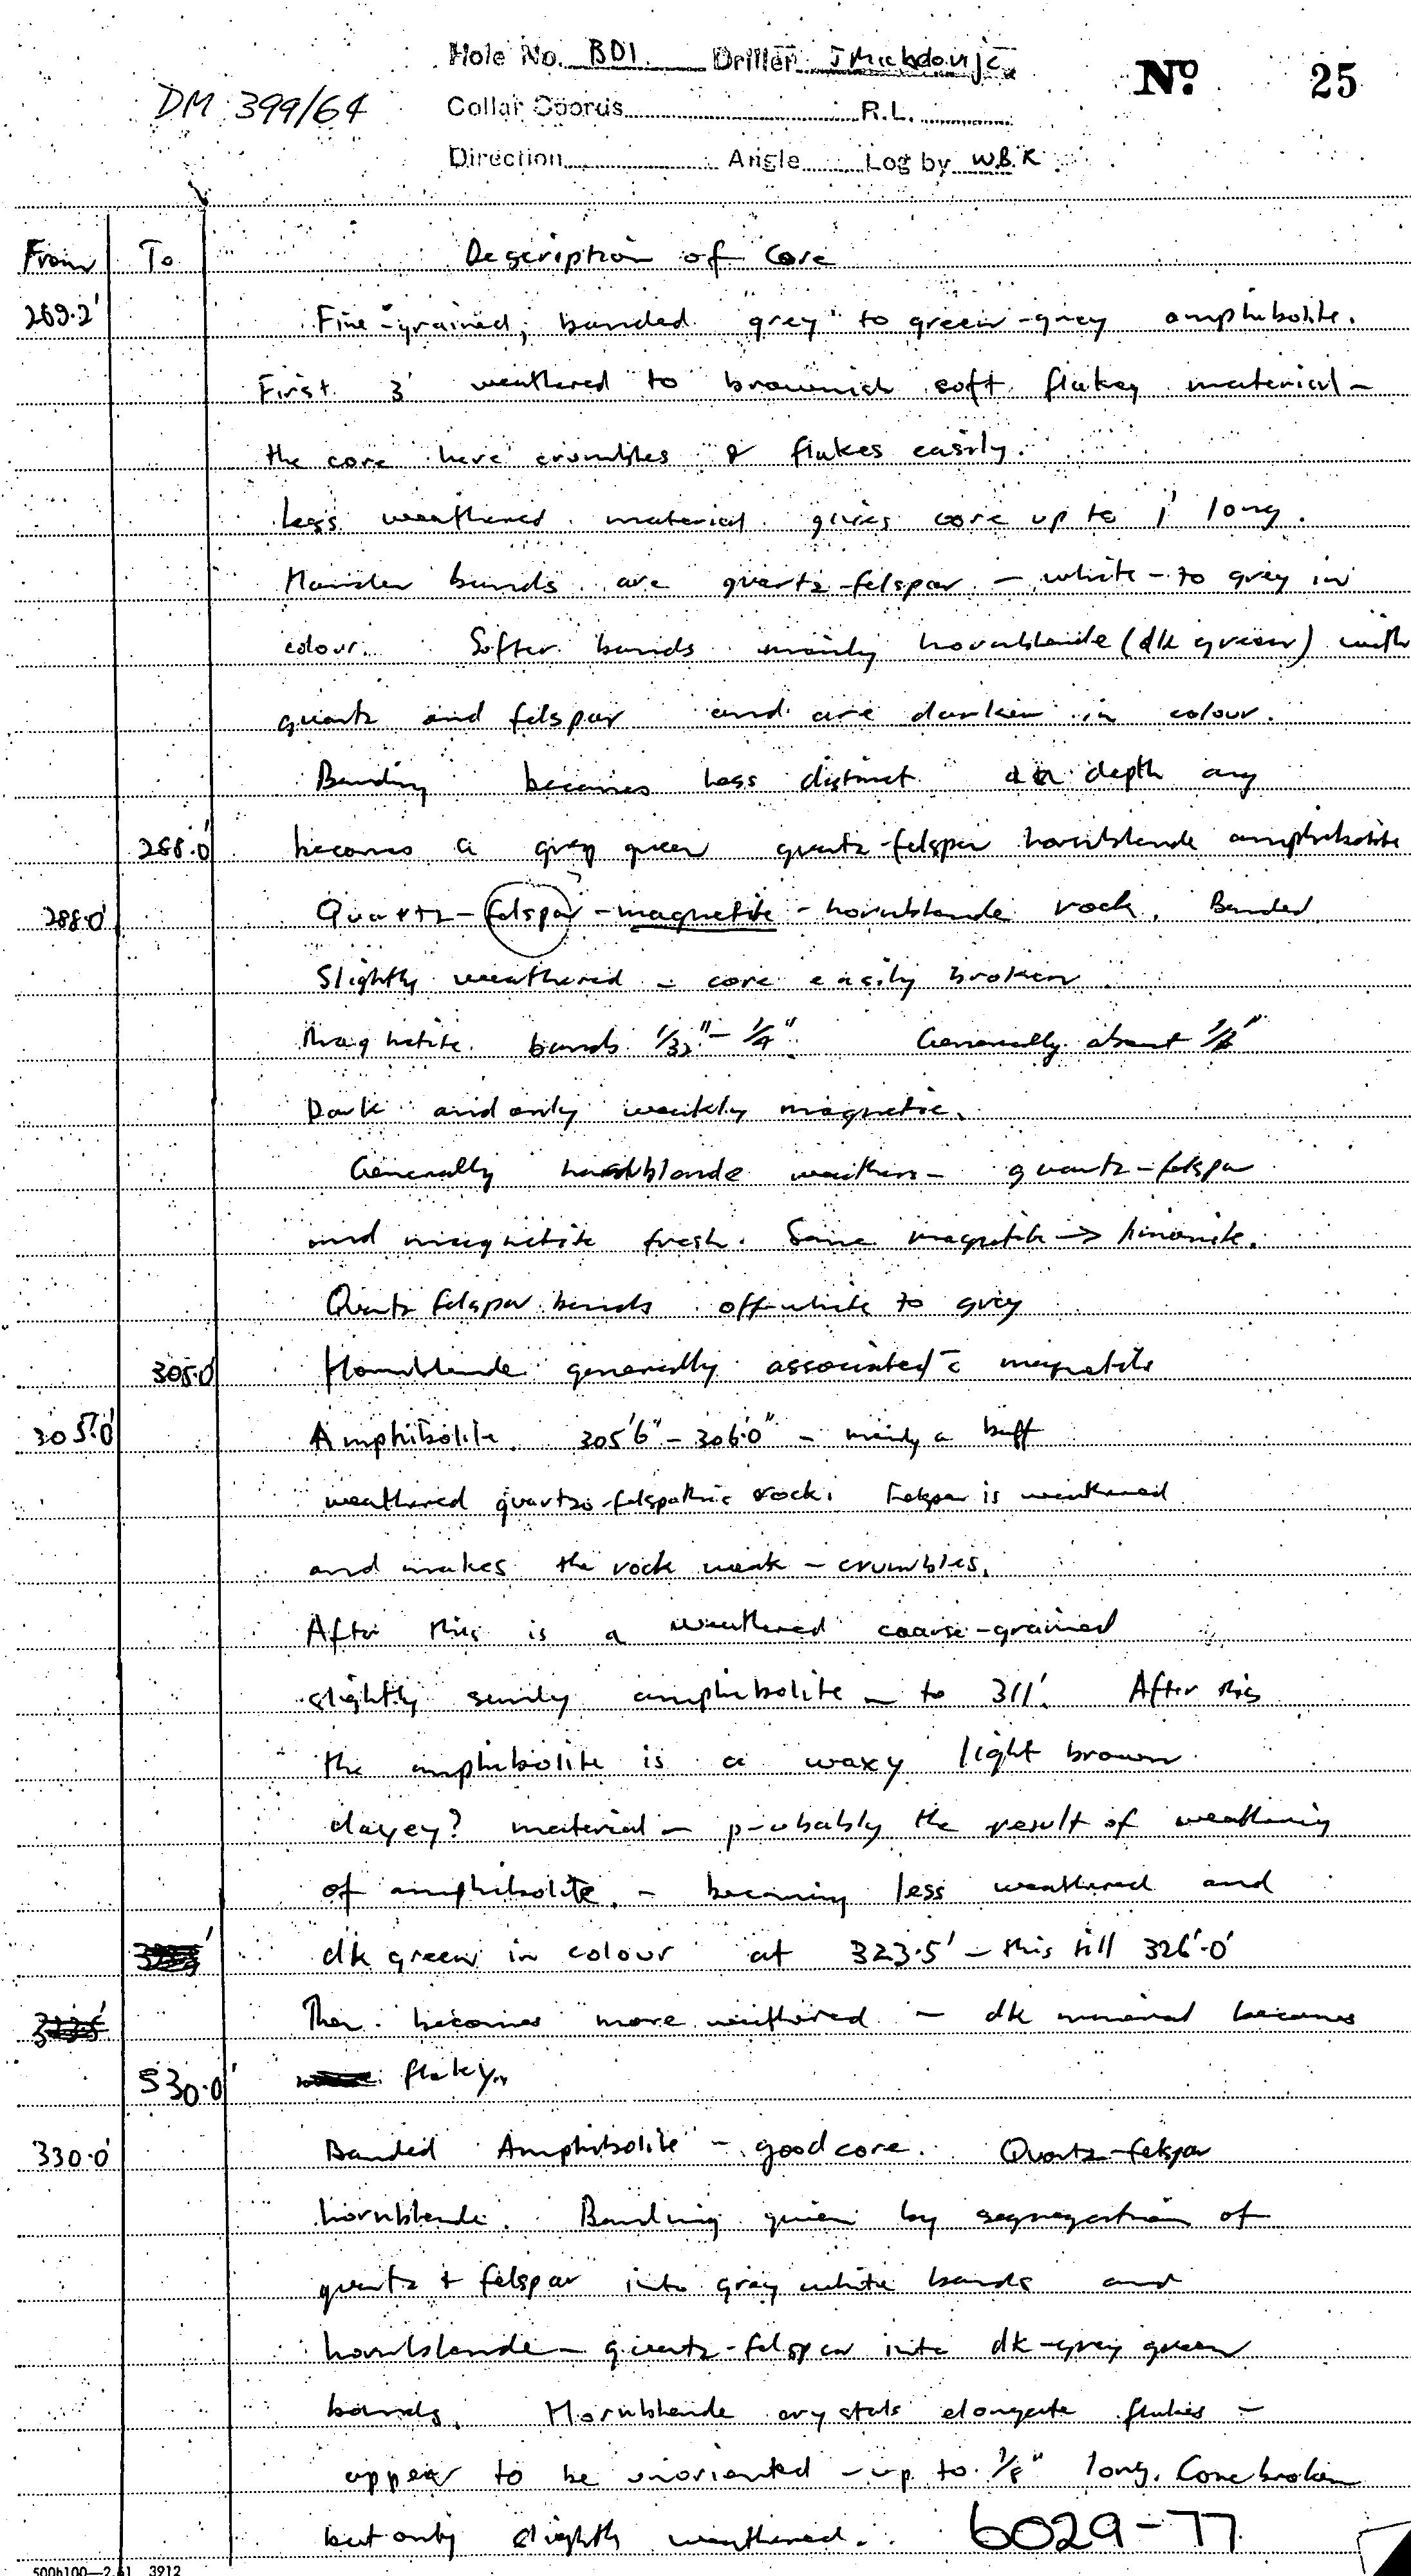 Hole No. BD1 Driller J Miehdovije
No. 25
DM 399/64
Collar Coords R.L.
Direction Angle Log by W.B.K
From To Description of Core
269.2' Fine-grained, banded grey to green-grey amphibolite.
First 3' weathered to brownish soft flakey material -
the core here crumbles & flakes easily.
Less weathered material gives core up to 1' long.
Harder bands are quartz-felspar - white - to grey in
colour. Softer bands mainly hornblende (dk green) with
quartz and felspar and are darker in colour.
Banding becomes less distinct at depth any
288.0' becomes a grey green quartz-felspar hornblende amphibolite
288.0' Quartz-felspar-magnetite-hornblende rock. Banded
Slightly weathered - core easily broken
Magnetite bands 1/32" - 1/4" Generally about 1/8"
Dark and only weakly magnetic.
Generally hornblende weathers - quartz-felspar
and magnetite fresh. Some magnetite -> limonite.
Quartz felspar bands off-white to grey
305.0' Hornblende generally associated c̄ magnetite
305.0' Amphibolite. 305'6" - 306'0" - mainly a buff
weathered quartzo-felspathic rock. Felspar is weathered
and makes the rock weak - crumbles.
After this is a weathered coarse-grained
slightly sandy amphibolite - to 311'. After this
the amphibolite is a waxy light brown
clayey? material - probably the result of weathering
of amphibolite - becoming less weathered and
dk green in colour at 323.5' - this till 326'.0'
Then becomes more weathered - dk mineral becomes
530.0' flakey.
330.0' Banded Amphibolite - good core. Quartz-felspar
hornblende. Banding given by segregation of
quartz + felspar into grey white bands and
hornblende - quartz-felspar into dk-grey green
bands. Hornblende crystals elongate flakes -
appear to be unoriented - up to 1/8" long. Core broken
but only slightly weathered. 6029-77
500b100—2.61 3912